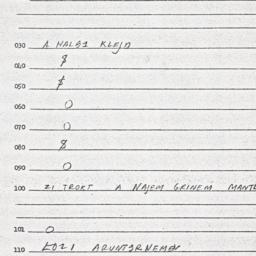 030 A HALB1 KLEJD
040 $
050 $
060 0
070 0
080 8
090 0
100 ZI TROKT A NAJEM GRINEM MANTL
101 0
110 LOZI ARUNTERNEMEN